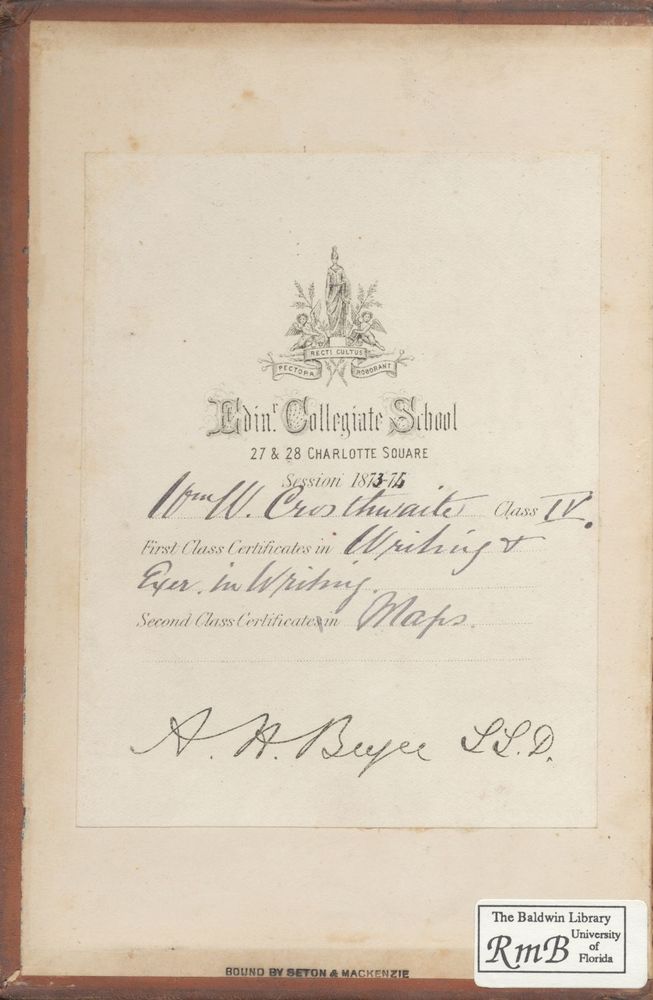 RECTI CULTUS
PECTORA ROBORANT
Edinr. Collegiate School
27 & 28 CHARLOTTE SQUARE
Session 1873-74
Wm W. Crosthwaite Class IV.
First Class Certificates in Writing &
Exer. in Writing.
Second Class Certificates in Maps.
A. H. Bryce LL.D.
The Baldwin Library
RmB University
of
Florida
BOUND BY SETON & MACKENZIE